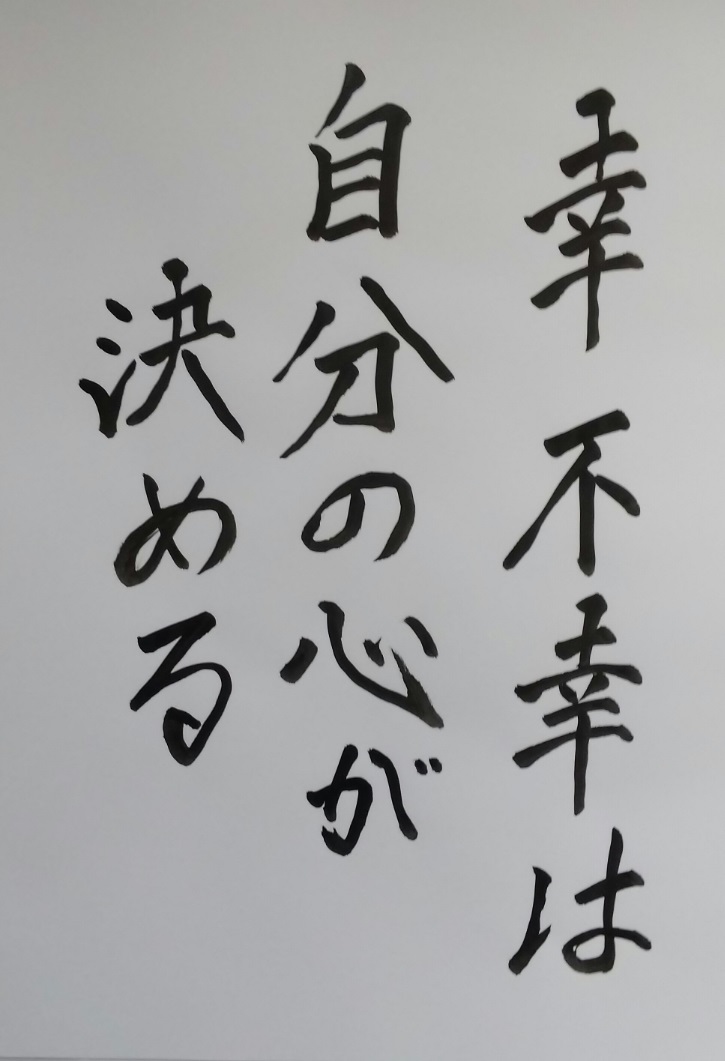 幸不幸は
自分の心が
決める